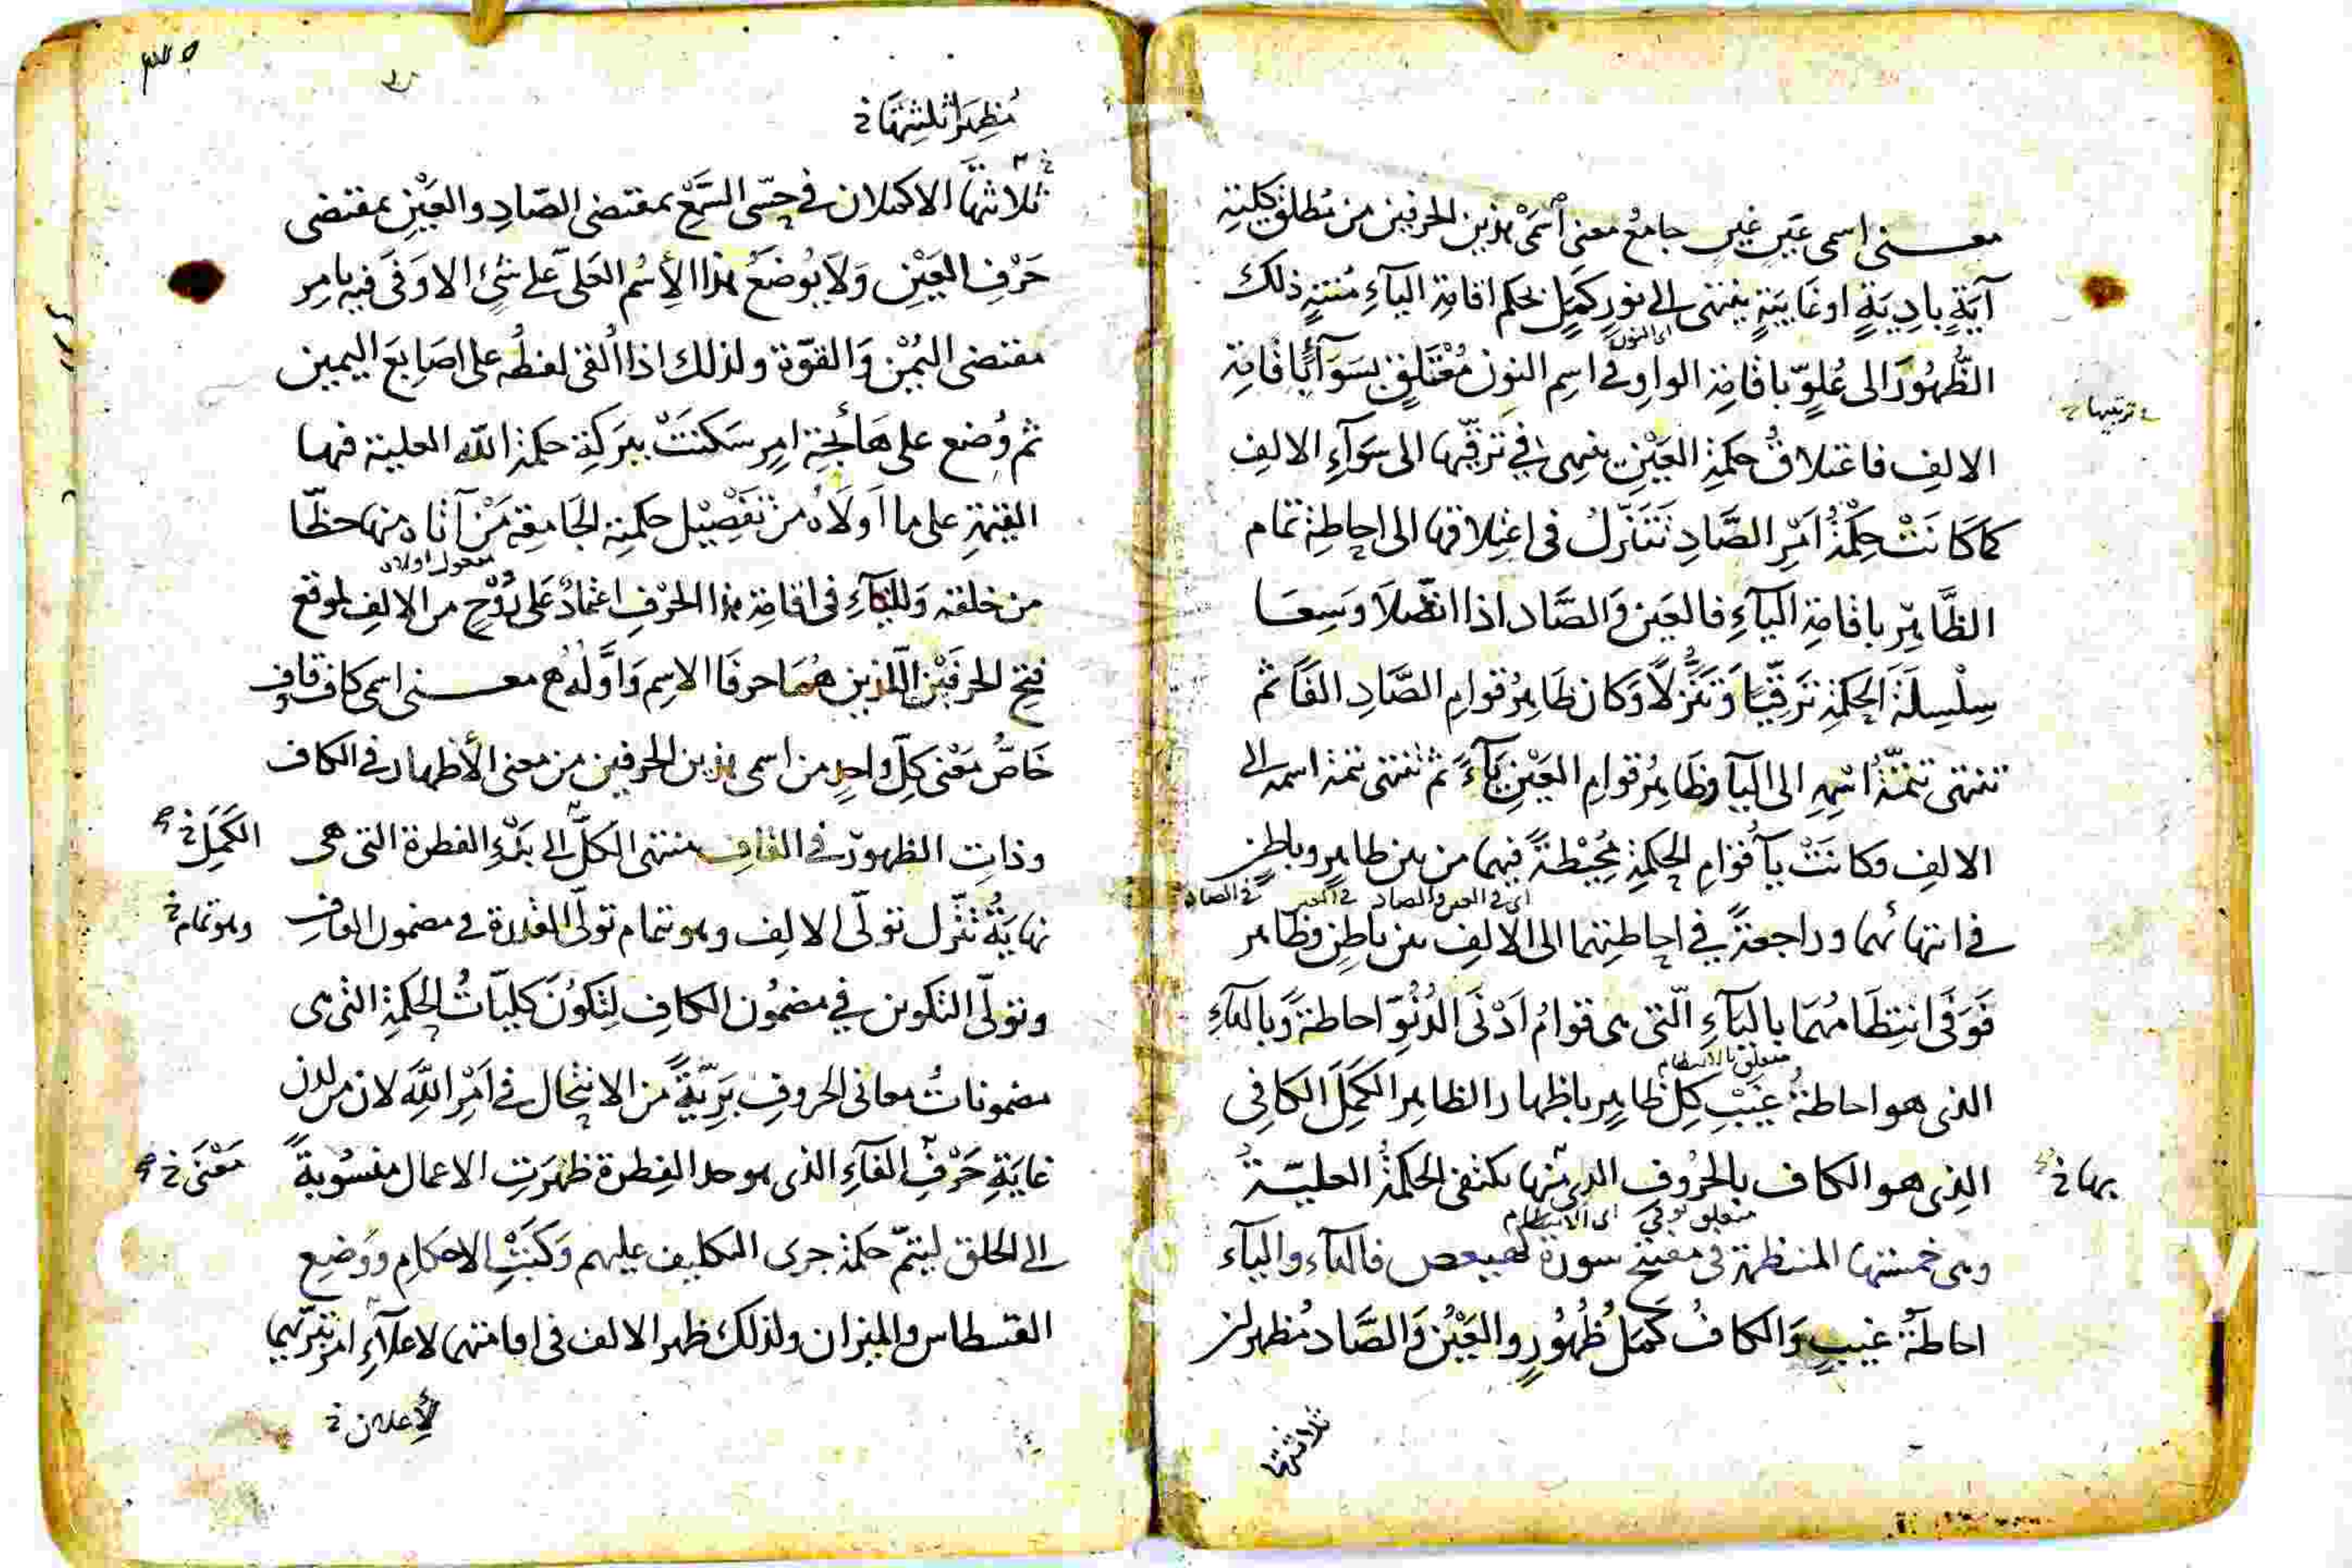 معنى اسمى عين غين جامع معنى اسمى هذين الحرفين من مطلق كلية
آيَةٍ بادِيَةٍ او غايبَةٍ ينتهى الى نورٍ كَمَلٍ بحكم اقامة الياءِ مُنتهٍ ذلك
اى النون
الظُّهُورَ الى عُلوٍّ باقامة الواوِ فى اسم النون مُعْتَلَقٍ بسَوَآءِ اقامة
ترتيبها خ
الالفِ فاعتلاقُ حكمةِ العَيْنِ ينهى فى ترقّيها الى سَوَآءِ الالفِ
كما كَانَتْ حِكْمَةُ اَمْرِ الصَّادِ تَتَنَزَّلُ فى اعْتِلاقها الى احاطة تمام
الظَّاهِرِ باقامة اليآءِ فالعَين وَالصَّاد اذا اتّصَلا وَسِعَا
سِلْسِلَةَ الحِكمَةِ تَرَقِّيًا وَتَنَزُّلًا وَكان ظَاهِرُ قوامِ الصَّادِ الفًا ثم
تنتهى تتمَّةُ اسْمِهِ الى اليآ وظَاهِرُ قوامِ العَيْنِ يَآءً ثم تنتهى تتمة اسمه الى
الالفِ وكانَتْ يَآ قَوَامِ الحِكمَةِ مُحِيْطَةً فيهما من بين ظاهرٍ وباطنٍ
اى فى العين والصاد فى العين فى الصاد
فى انتهائهما وراجعةً فى احاطتهما الى الالف بين باطنٍ وظاهر
فَوَفَى انتِظَامُهُمَا باليَآءِ الّتى هى قوامُ اَدْنَى الدُنُوِّ احاطةً وَبالهآءِ
متعلق بالانتظام
الذى هو احاطةُ غَيْبِ كلِّ ظاهِرٍ باظهار الظاهر الكَمَلَ الكافى
الذى هو الكاف بالحُرُوفِ الذى منها يكتفى الحكمةُ العليّةُ
بها خ
متعلق بوفى اى الانتظام
وهى خمستها المنتظمة فى مفتتح سورة كهيعص فالهآء واليآء
احاطةُ غيبٍ وَالكافُ كَمَلُ ظُهُورٍ والعَيْنُ وَالصَّاد مُظهر لز
ثلاثتها
مُظهِرَا ثلثتها خ
ثلاثتها الاكملان فى حسّى السَّمْعِ بمقتضى الصّادِ والعَيْنِ بمقتضى
حَرْفِ العَيْنِ وَلا يُوضَعُ هذا الأِسْم العَلىّ على شئ الا وَفَى فيه بامرِ
مقتضى اليُمْن وَالقوّة ولذلك اذا اُلقى لفظُه على اصَابِعَ اليمين
ثم وُضِع على هَائجةِ امرٍ سَكنَتْ ببَرَكةِ حكمة الله العلية فيها
القيّمةِ على ما اَولَاهُ من تَفْصِيْل حكمته الجَامِعَة مَنْ آتاه منها حظّا
مفعول اولاه
من خلقه وَلليَآءِ فى اقامة هذا الحرْفِ اعتمادٌ على رَوْحٍ من الالفِ لموقع
فتح الحرفَيْن اللّذين هُمَا حرفَا الاسم وَاَوَّلُهُ معنى اسمى كاف قاف
خَاصُّ مَعْنى كلِّ واحدٍ من اسمى هذين الحرفين من معنى الأظهار فى الكاف
وذاتِ الظهور فى القاف منتهى الكلِّ الى بَدْءِ الفطرة التى هى
الكَمَلِ خ
نهايَةُ تنزّل تولّى الالف وهو تمام تولّى القدرة فى مضمون القاف
وهو تمام خ
وتولّى التكوين فى مضمُون الكافِ لِتَكوُن كليّاتُ الحكمةِ التى هى
مضموناتُ معانى الحروفِ بَرِيَّةً من الانتحال فى اَمْرِ اللهِ لان من لدن
غايَةِ حَرْفِ الفآءِ الذى هو حد الفِطرة ظهَرَتِ الاعمال منسُوبةً
مَعْنَى خ
الى الخلق ليتمّ حكمة جرى التكليف عليهم وَكَتْبِ الاحكامِ ووَضعِ
القسطاس والميزان ولذلك ظهر الالف فى اقامتهما لاعلآءِ امر تنزّلهما
لأعلان خ